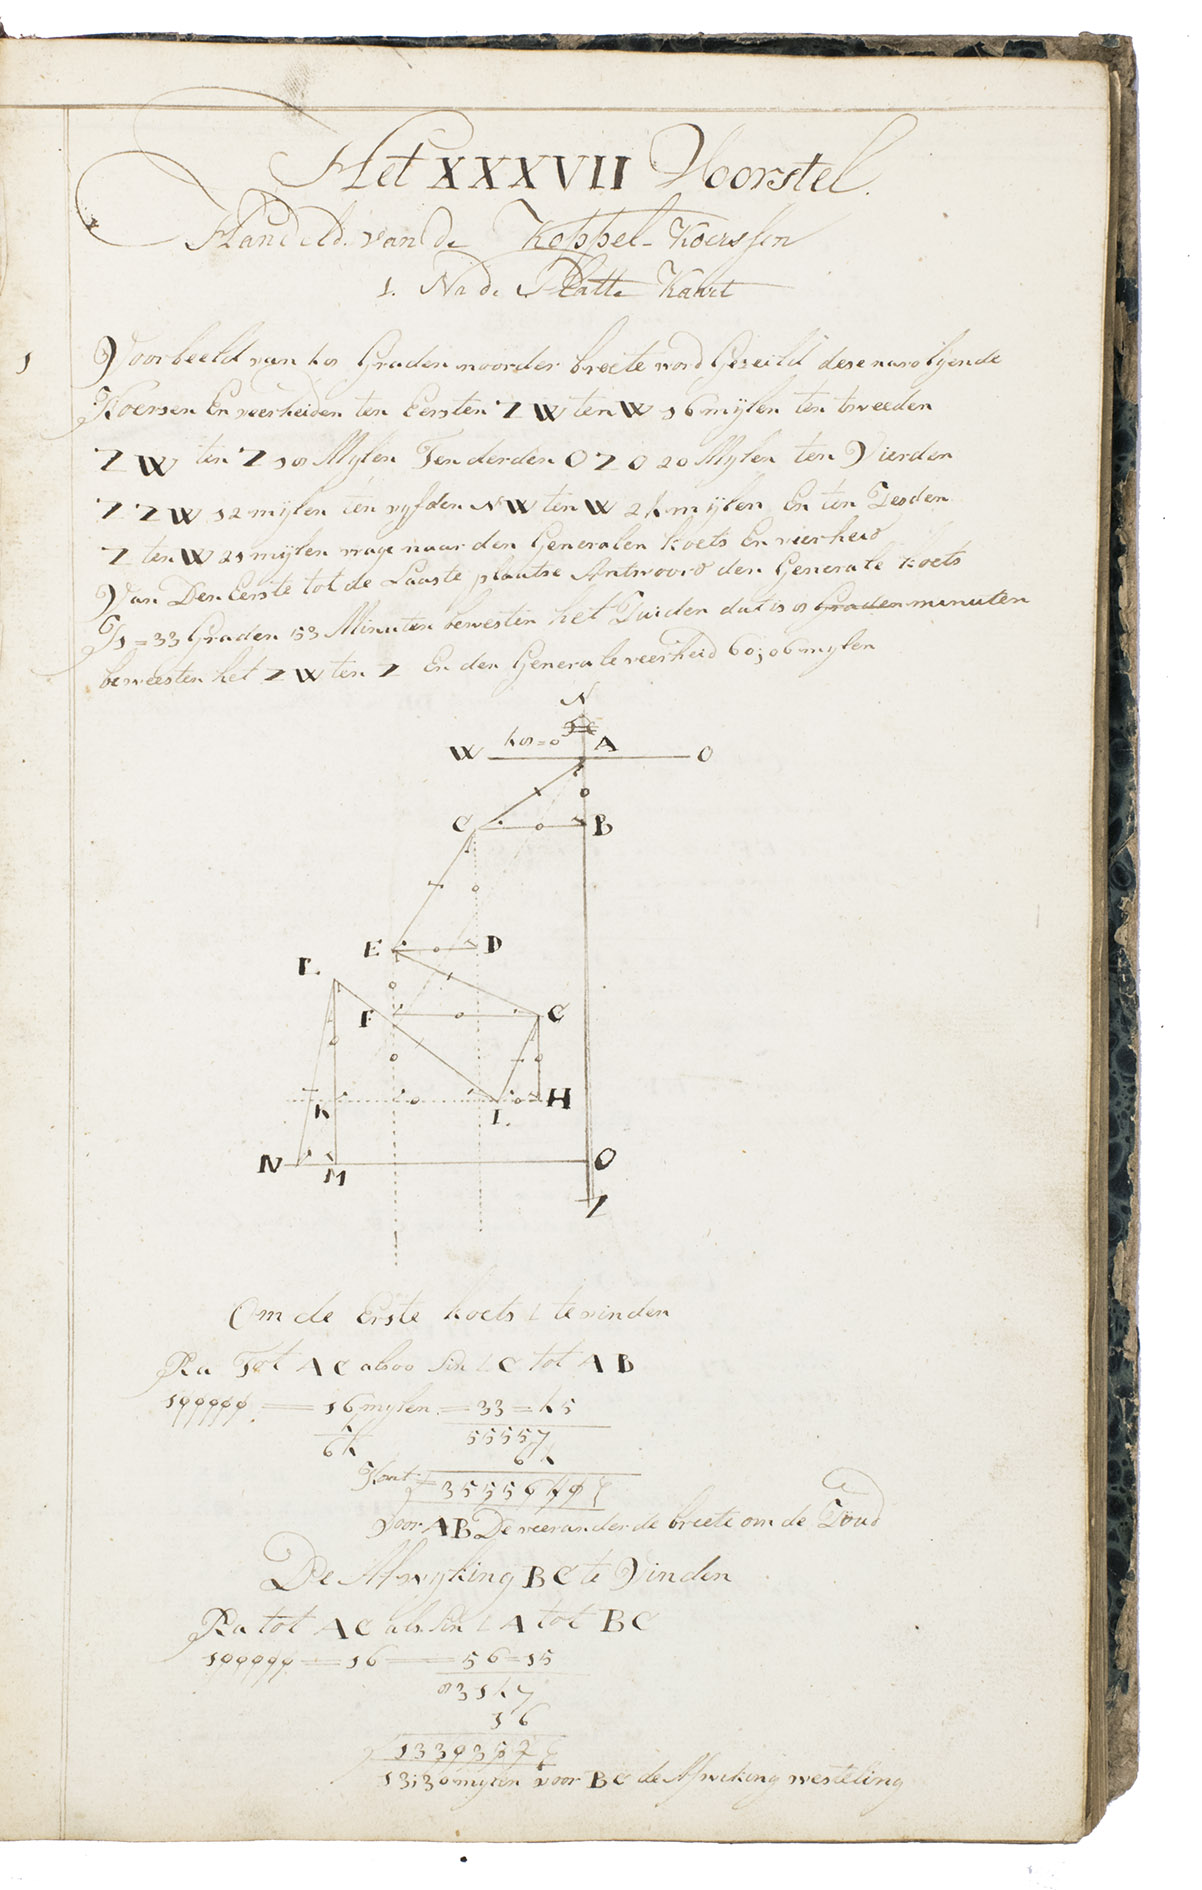 Het XXXVII Voorstel.
Handeld van de Koppel-Koerssen
1. Na de Platte Kaart
1
Voorbeeld van 48 Graden noorder breete word Gezeild dese navolgende
Koersen En veerheiden ten Eersten ZW ten W 16 mylen ten tweeden
ZW ten Z 18 Mylen Ten derden OZO 20 Mylen ten Vierden
ZZW 12 mylen ten vyfden NW ten W 24 mylen En ten Zesden
Z ten W 21 mylen vrage naar den Generalen Koets En veerheid
Van Den Eerste tot de Laaste plaatse Antwoord den Generale Koets
Is = 33 Graden 53 Minuten bewesten het Zuiden dat is 8 Graden minuten
beweesten het ZW ten Z En den Generale veerheid 60;06 mylen
N
W 48=0 A O
C B
E D
L
F G
K I. H
N M O
Z
Om de Erste koets ∠ te vinden
Ra Tot AC alsoo Sin ∠ C tot AB
100000 = 16 mylen = 33 = 45
4
64 55557
64
Komt 3555648
Voor AB De veeranderde breete om de Zuid
De Afwyking BC te Vinden
Ra tot AC als Sin ∠ A tot BC
100000 = 16 = 56=15
83147
16
1330352
13;30 mylen voor BC de Afwiking westeling